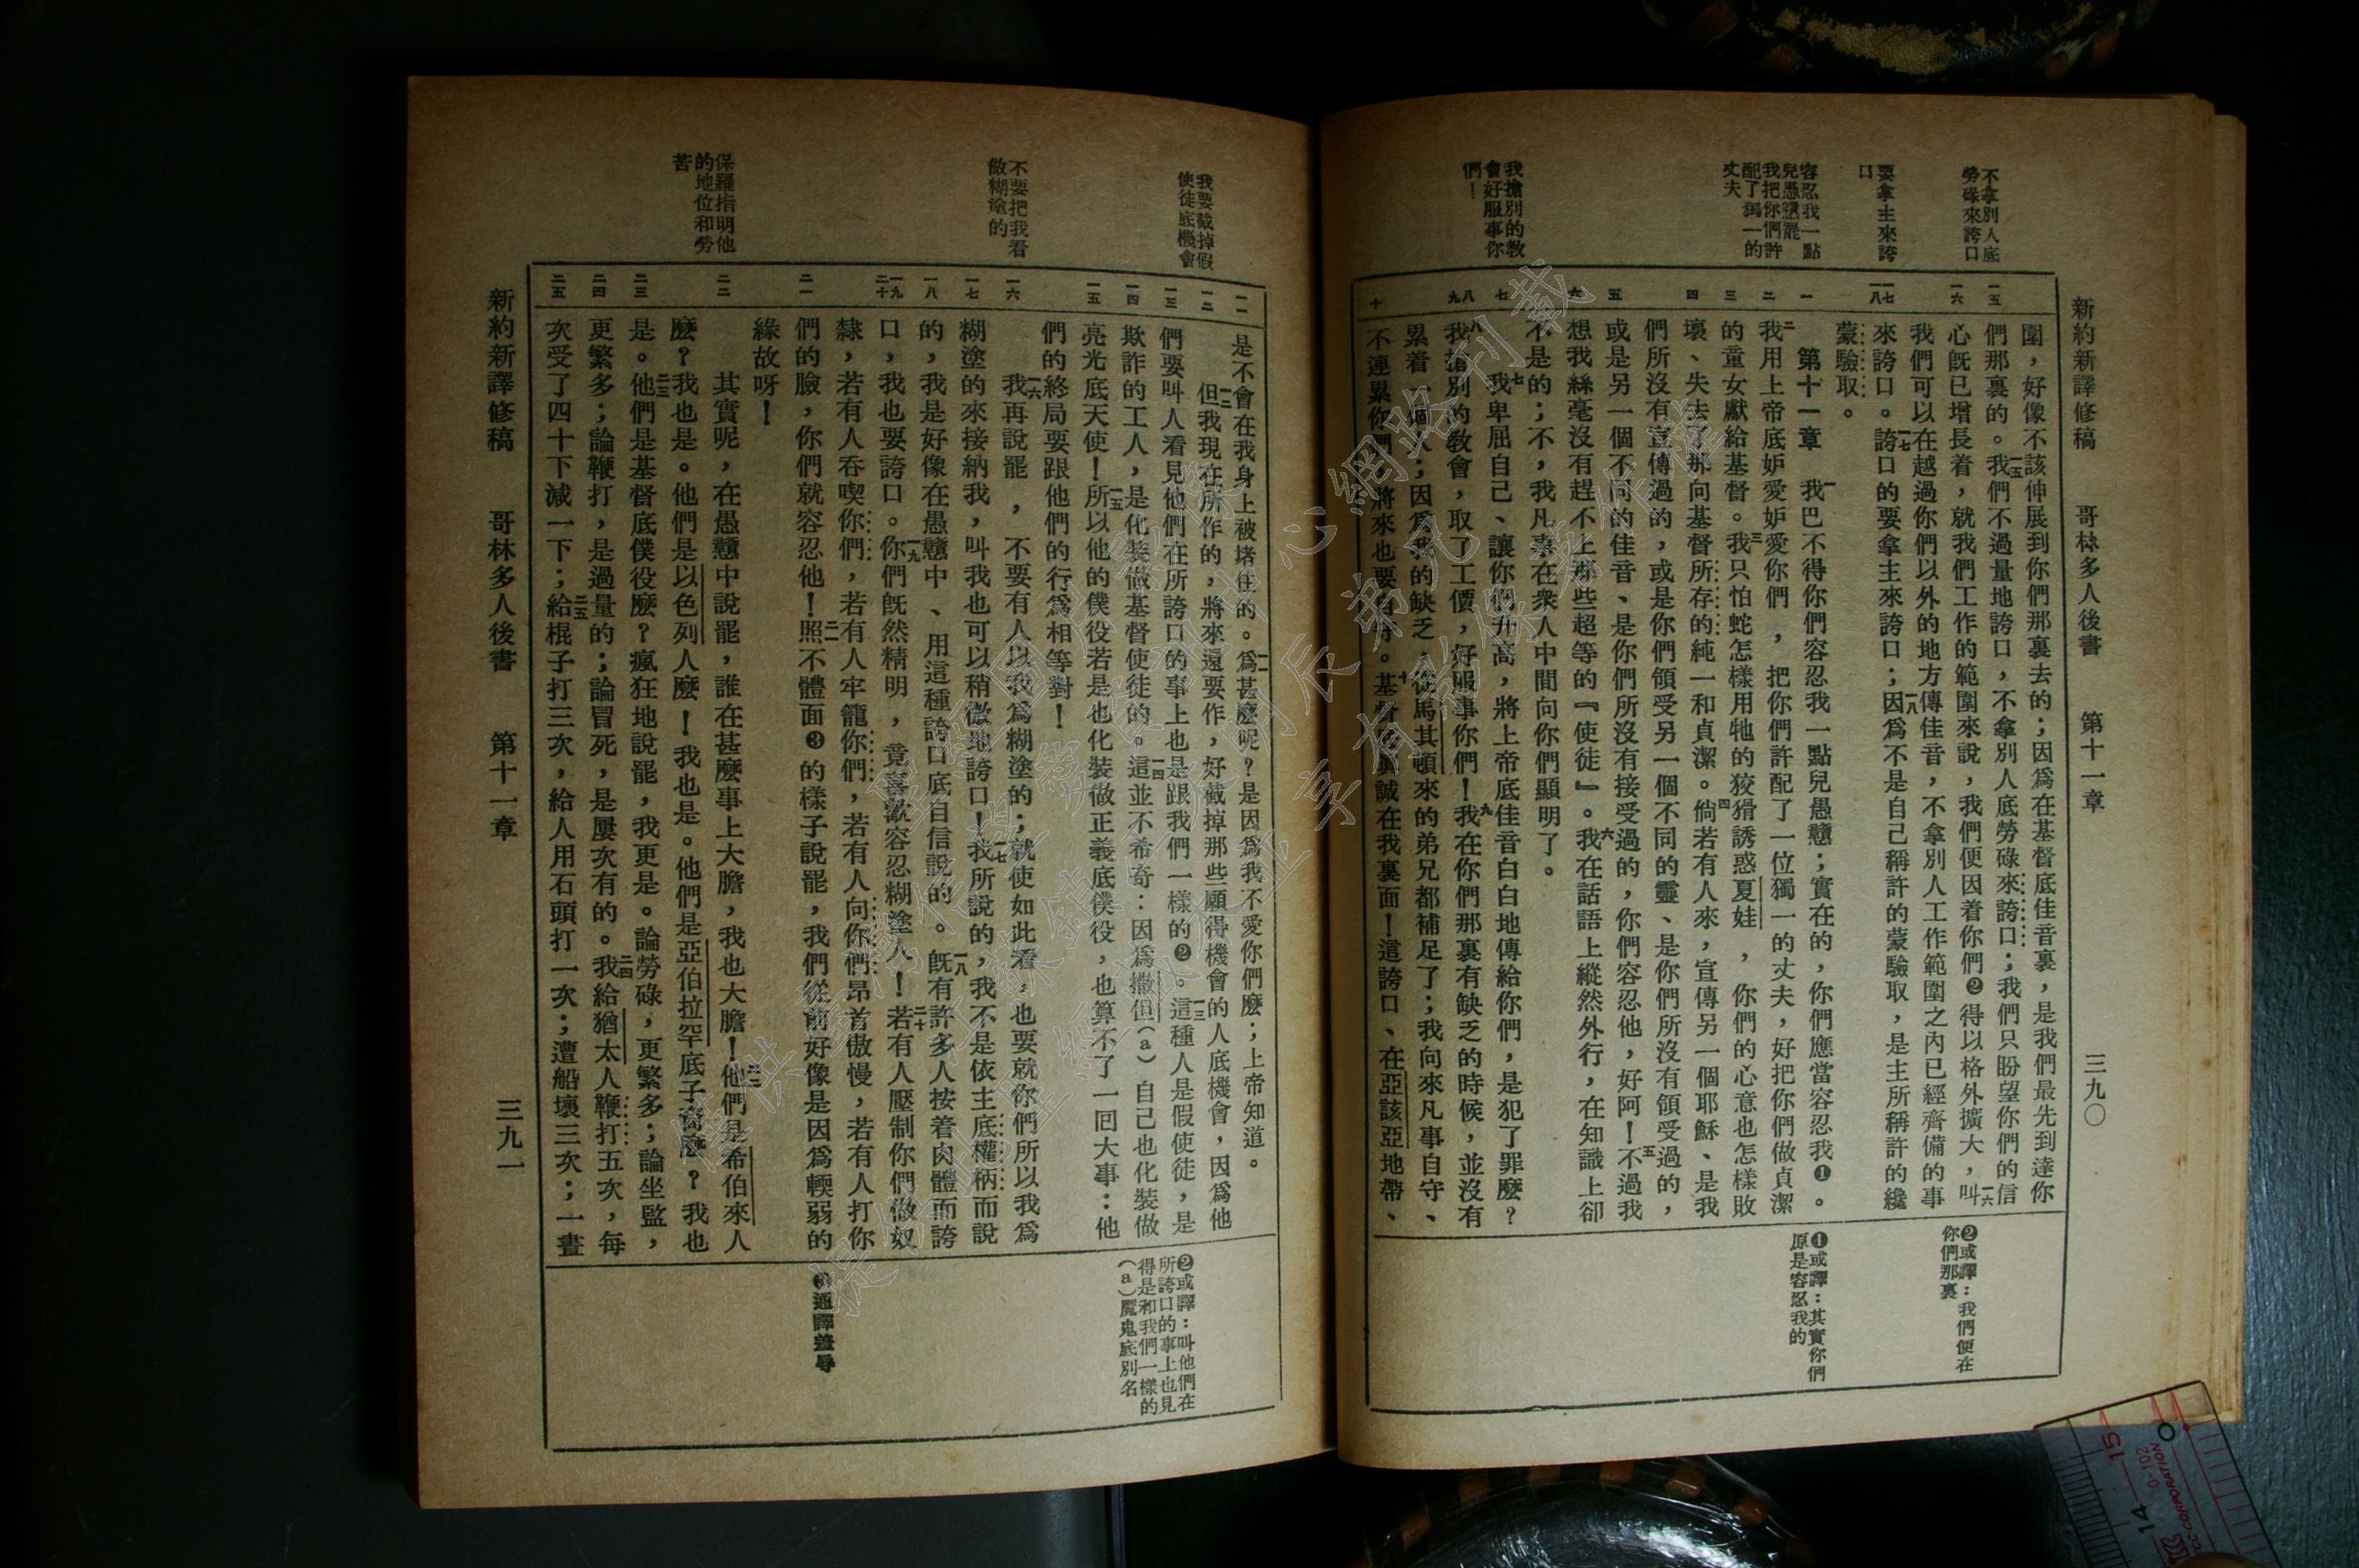 新約新譯修稿　哥林多人後書　第十一章　三九〇
不拿別人底
勞碌來誇口
要拿主來誇
口
容忍我一點
兒愚戇罷
我把你們許
配了獨一的
丈夫
我搶別的教
會好服事你
們！
一五
一六
一七
一八
一
二
三
四
五
六
七
八
九
十
圍，好像不該伸展到你們那裏去的；因爲在基督底佳音裏，是我們最先到達你
們那裏的。一五我們不過量地誇口，不拿別人底勞碌來誇口；我們只盼望你們的信
心旣已增長着，就我們工作的範圍來說，我們便因着你們❷得以格外擴大，一六叫
我們可以在越過你們以外的地方傳佳音，不拿別人工作範圍之內已經齊備的事
來誇口。一七誇口的要拿主來誇口；一八因爲不是自己稱許的蒙驗取，是主所稱許的纔
蒙驗取。
第十一章　一我巴不得你們容忍我一點兒愚戇；實在的，你們應當容忍我❶。
二我用上帝底妒愛妒愛你們，把你們許配了一位獨一的丈夫，好把你們做貞潔
的童女獻給基督。三我只怕蛇怎樣用牠的狡猾誘惑夏娃，你們的心意也怎樣敗
壞、失去了那向基督所存的純一和貞潔。四倘若有人來，宣傳另一個耶穌、是我
們所沒有宣傳過的，或是你們領受另一個不同的靈、是你們所沒有領受過的，
或是另一個不同的佳音、是你們所沒有接受過的，你們容忍他，好阿！五不過我
想我絲毫沒有趕不上那些超等的『使徒』。六我在話語上縱然外行，在知識上卻
不是的；不，我凡事在衆人中間向你們顯明了。
七我卑屈自己、讓你們升高，將上帝底佳音白白地傳給你們，是犯了罪麽？
八我搶別的教會，取了工價，好服事你們！九我在你們那裏有缺乏的時候，並沒有
累着一個人；因爲我的缺乏、從馬其頓來的弟兄都補足了；我向來凡事自守、
不連累你們，將來也要自守。十基督底眞誠在我裏面！這誇口、在亞該亞地帶、
❷或譯：我們便在
你們那裏
❶或譯：其實你們
原是容忍我的
我要截掉假
使徒底機會
不要把我看
做糊塗的
保羅指明他
的地位和勞
苦
一一
一二
一三
一四
一五
一六
一七
一八
一九
二十
二一
二二
二三
二四
二五
是不會在我身上被堵住的。一一爲甚麽呢？是因爲我不愛你們麽；上帝知道。
一二但我現在所作的，將來還要作，好截掉那些願得機會的人底機會，因爲他
們要叫人看見他們在所誇口的事上也是跟我們一樣的❷。一三這種人是假使徒，是
欺詐的工人，是化裝做基督使徒的。一四這並不希奇：因爲撒但（a）自己也化裝做
亮光底天使！一五所以他的僕役若是也化裝做正義底僕役，也算不了一回大事：他
們的終局要跟他們的行爲相等對！
一六我再說罷，不要有人以我爲糊塗的；就使如此看，也要就你們所以我爲
糊塗的來接納我，叫我也可以稍微地誇口！一七我所說的，我不是依主底權柄而說
的，我是好像在愚戇中、用這種誇口底自信說的。一八旣有許多人按着肉體而誇
口，我也要誇口。一九你們旣然精明，竟喜歡容忍糊塗人！二十若有人壓制你們做奴
隸，若有人吞喫你們，若有人牢籠你們，若有人向你們昂首傲慢，若有人打你
們的臉，你們就容忍他！二一照不體面❸的樣子說罷，我們從前好像是因爲輭弱的
緣故呀！
其實呢，在愚戇中說罷，誰在甚麽事上大膽，我也大膽！二二他們是希伯來人
麽？我也是。他們是以色列人麽！我也是。他們是亞伯拉罕底子裔麽？我也
是。二三他們是基督底僕役麽？瘋狂地說罷，我更是。論勞碌，更繁多；論坐監，
更繁多；論鞭打，是過量的；論冒死，是屢次有的。二四我給猶太人鞭打五次，每
次受了四十下減一下；二五給棍子打三次，給人用石頭打一次；遭船壞三次；一晝
❷或譯：叫他們在
所誇口的事上也見
得是和我們一樣的
（a）魔鬼底別名
❸通譯羞辱
新約新譯修稿　哥林多人後書　第十一章　三九一
15
14
0-102
CORPORATION